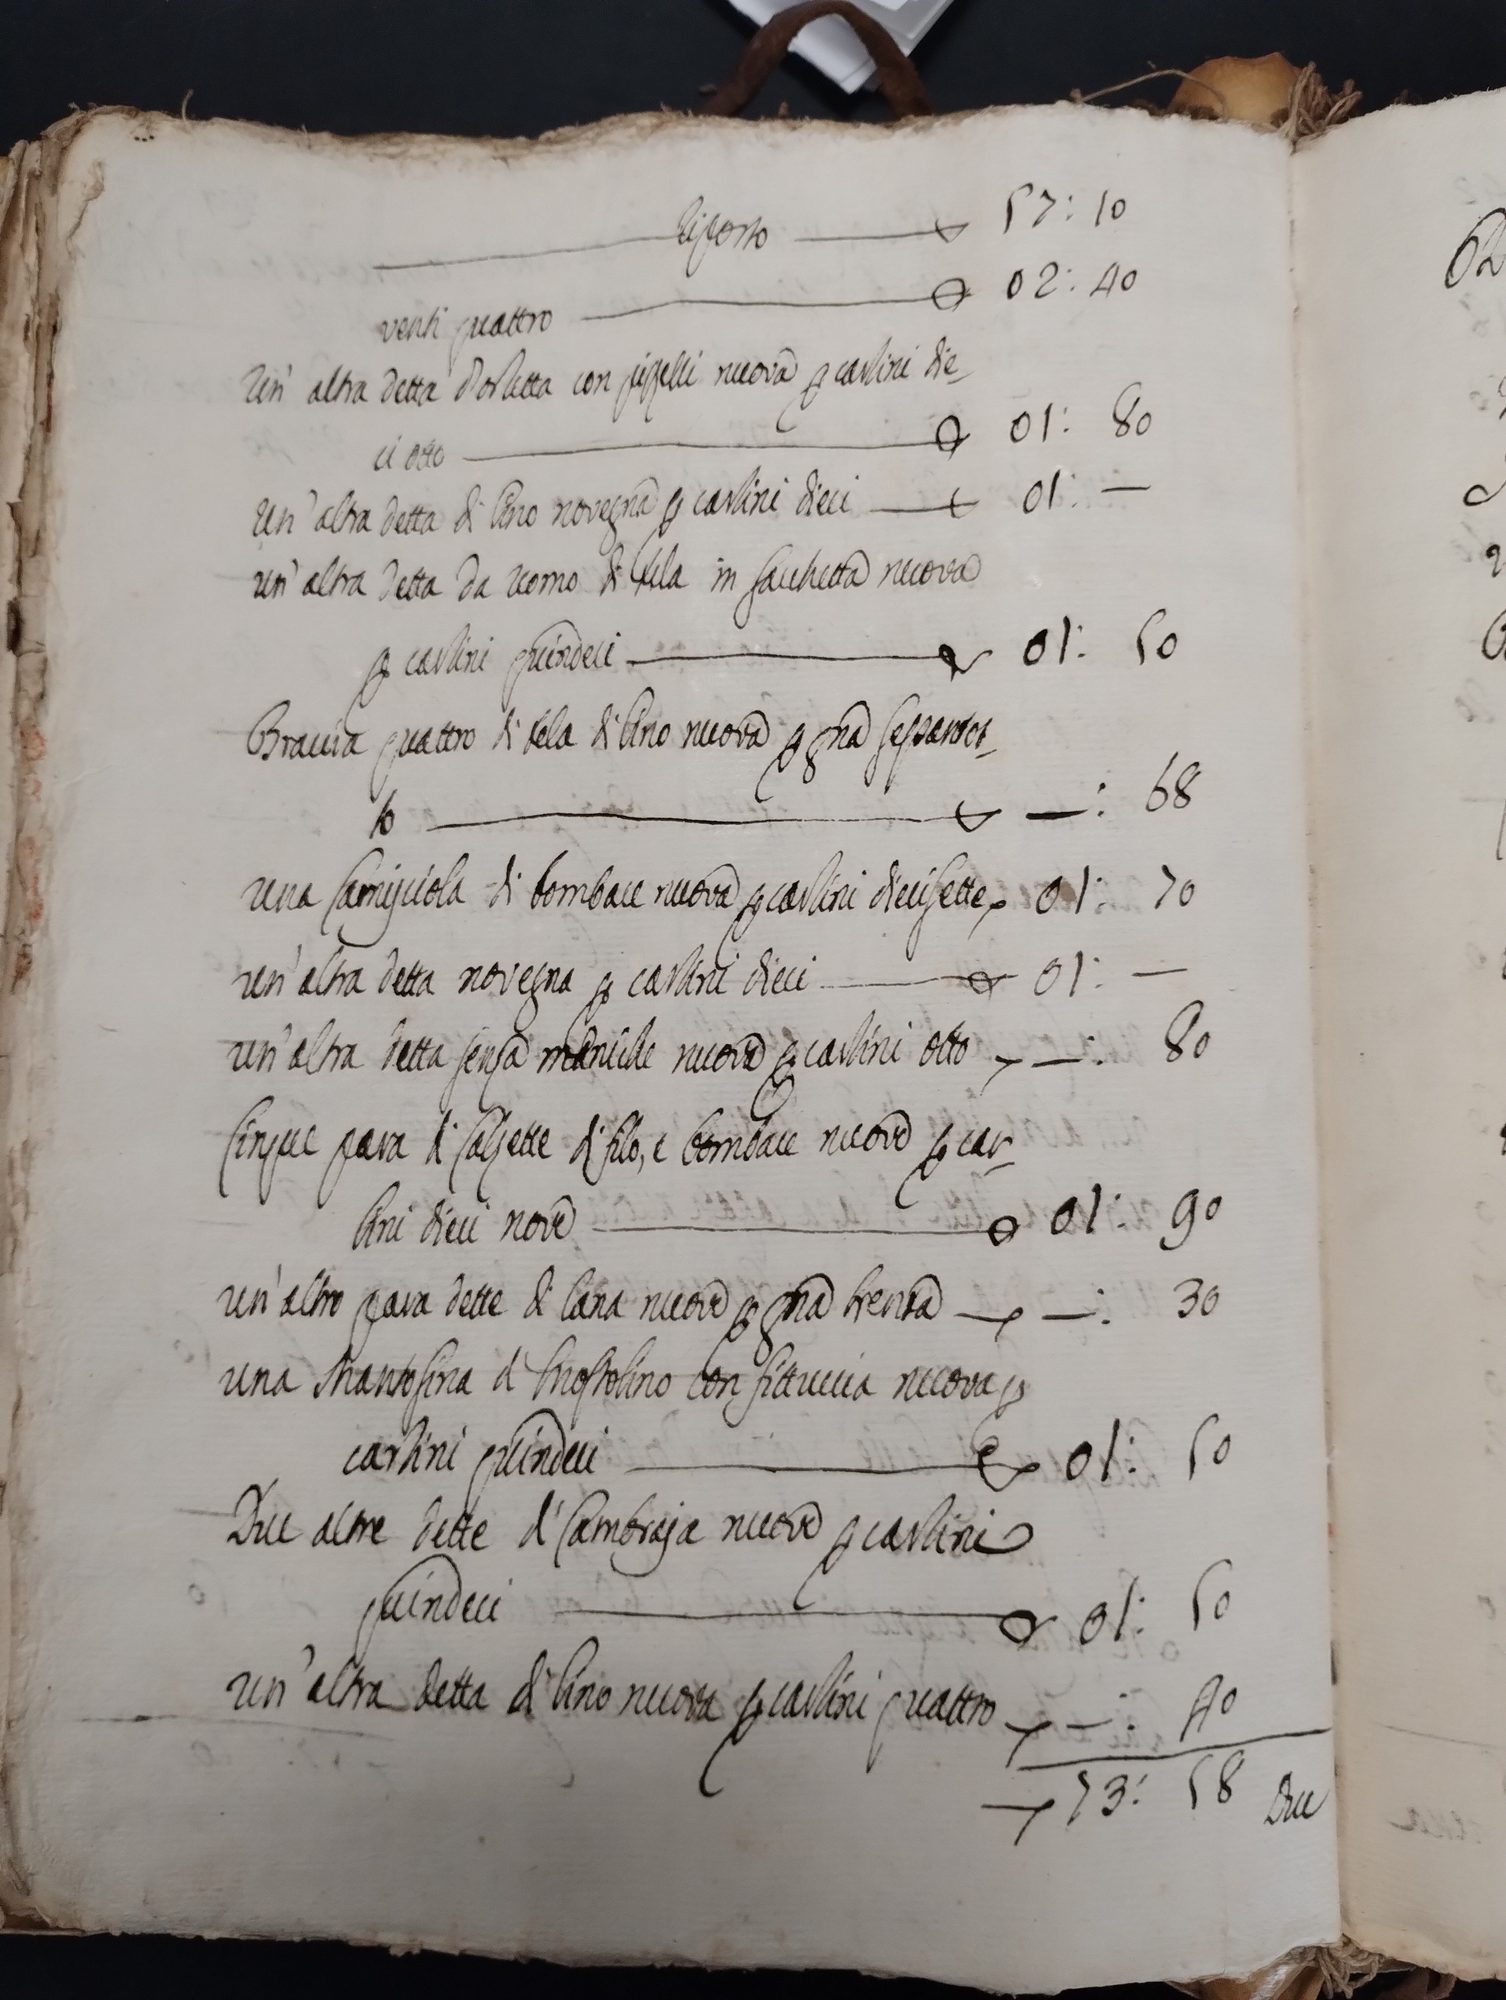 Riporto 57: 10
venti quattro 02: 40
Un' altra detta d'orletta con pizzelli nuova p carlini die-
ci otto 01: 80
Un' altra detta di lino novegna p carlini dieci 01: —
un' altra detta da uomo di tela in sacchetta nuova
p carlini quindeci 01: 50
Braccia quattro di tela di lino nuova p grana sessantot-
to —: 68
una Camisciola di bombace nuova p carlini diecisette 01: 70
un' altra detta novegna p carlini dieci 01: —
un' altra detta senza maniche nuova p carlini otto —: 80
Cinque para di Calzette di filo, e bombace nuove p car-
lini dieci nove 01: 90
un' altro para dette di lana nuove p grana trenta —: 30
una Mantosina di con fittuccia nuova p
carlini quindeci 01: 50
Due altre dette di Cambraja nuove p carlini
quindeci 01: 50
un' altra detta di lino nuova p carlini quattro —: 40
73: 58
Due